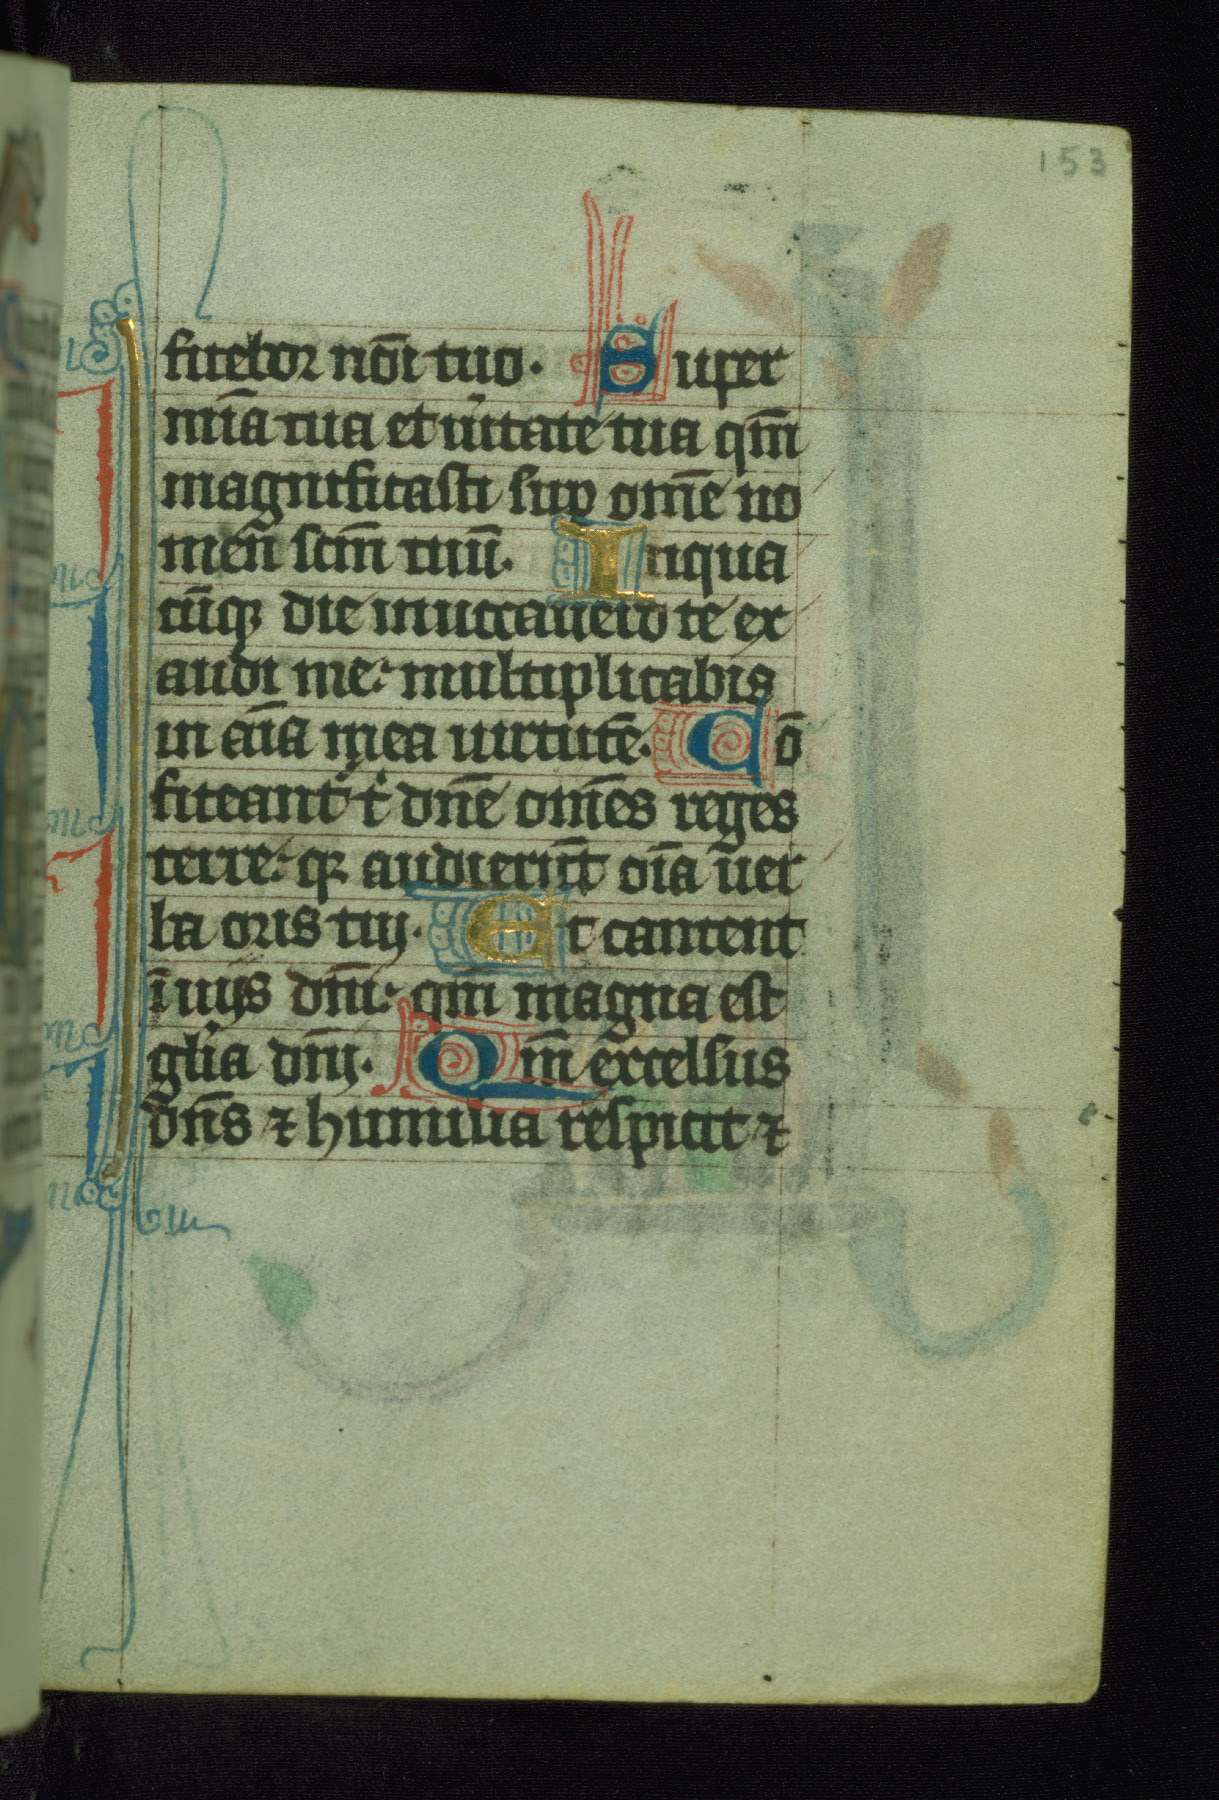 153
fitebor nōi tuo. Super
mīa tua et ūitate tua qm̄
magnificasti sup om̄e no
men̄ scm̄ tuū. In qua
cūq; die inuocauero te ex
audi me: multiplicabis
in aīa mea uirtutē. Cō
fiteant̄ t dn̄e om̄es reges
terre: q; audierūt oīa uer
ba oris tui. Et cantent
ī uijs dn̄i: qm̄ magna est
gl̄ia dn̄i. Qm̄ excelsus
dn̄s ⁊ humilia respicit ⁊